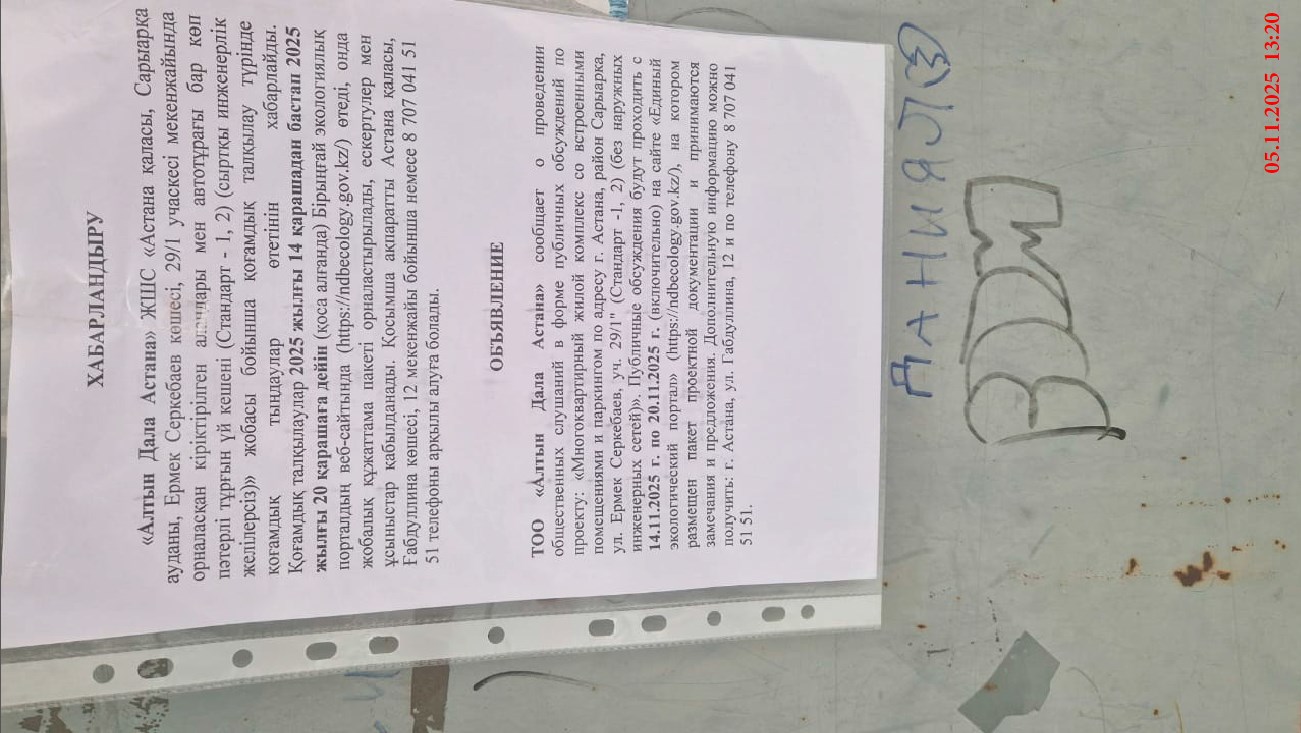 ХАБАРЛАНДЫРУ
«Алтын Дала Астана» ЖШС «Астана қаласы, Сарыарқа
ауданы, Ермек Серкебаев көшесі, 29/1 учаскесі мекенжайында
орналасқан кіріктірілген алаңдары мен автотұрағы бар көп
пәтерлі тұрғын үй кешені (Стандарт - 1, 2) (сыртқы инженерлік
желілерсіз)» жобасы бойынша қоғамдық талқылау түрінде
қоғамдық тыңдаулар өтетінін хабарлайды.
Қоғамдық талқылаулар 2025 жылғы 14 қарашадан бастап 2025
жылғы 20 қарашаға дейін (қоса алғанда) Бірыңғай экологиялық
порталдың веб-сайтында (https://ndbecology.gov.kz/) өтеді, онда
жобалық құжаттама пакеті орналастырылады, ескертулер мен
ұсыныстар қабылданады. Қосымша ақпаратты Астана қаласы,
Ғабдуллина көшесі, 12 мекенжайы бойынша немесе 8 707 041 51
51 телефоны арқылы алуға болады.
ОБЪЯВЛЕНИЕ
ТОО «Алтын Дала Астана» сообщает о проведении
общественных слушаний в форме публичных обсуждений по
проекту: «Многоквартирный жилой комплекс со встроенными
помещениями и паркингом по адресу г. Астана, район Сарыарка,
ул. Ермек Серкебаев, уч. 29/1" (Стандарт -1, 2) (без наружных
инженерных сетей)». Публичные обсуждения будут проходить с
14.11.2025 г. по 20.11.2025 г. (включительно) на сайте «Единый
экологический портал» (https://ndbecology.gov.kz/), на котором
размещен пакет проектной документации и принимаются
замечания и предложения. Дополнительную информацию можно
получить: г. Астана, ул. Габдуллина, 12 и по телефону 8 707 041
51 51.
ДАНИЯЛ
05.11.2025 13:20